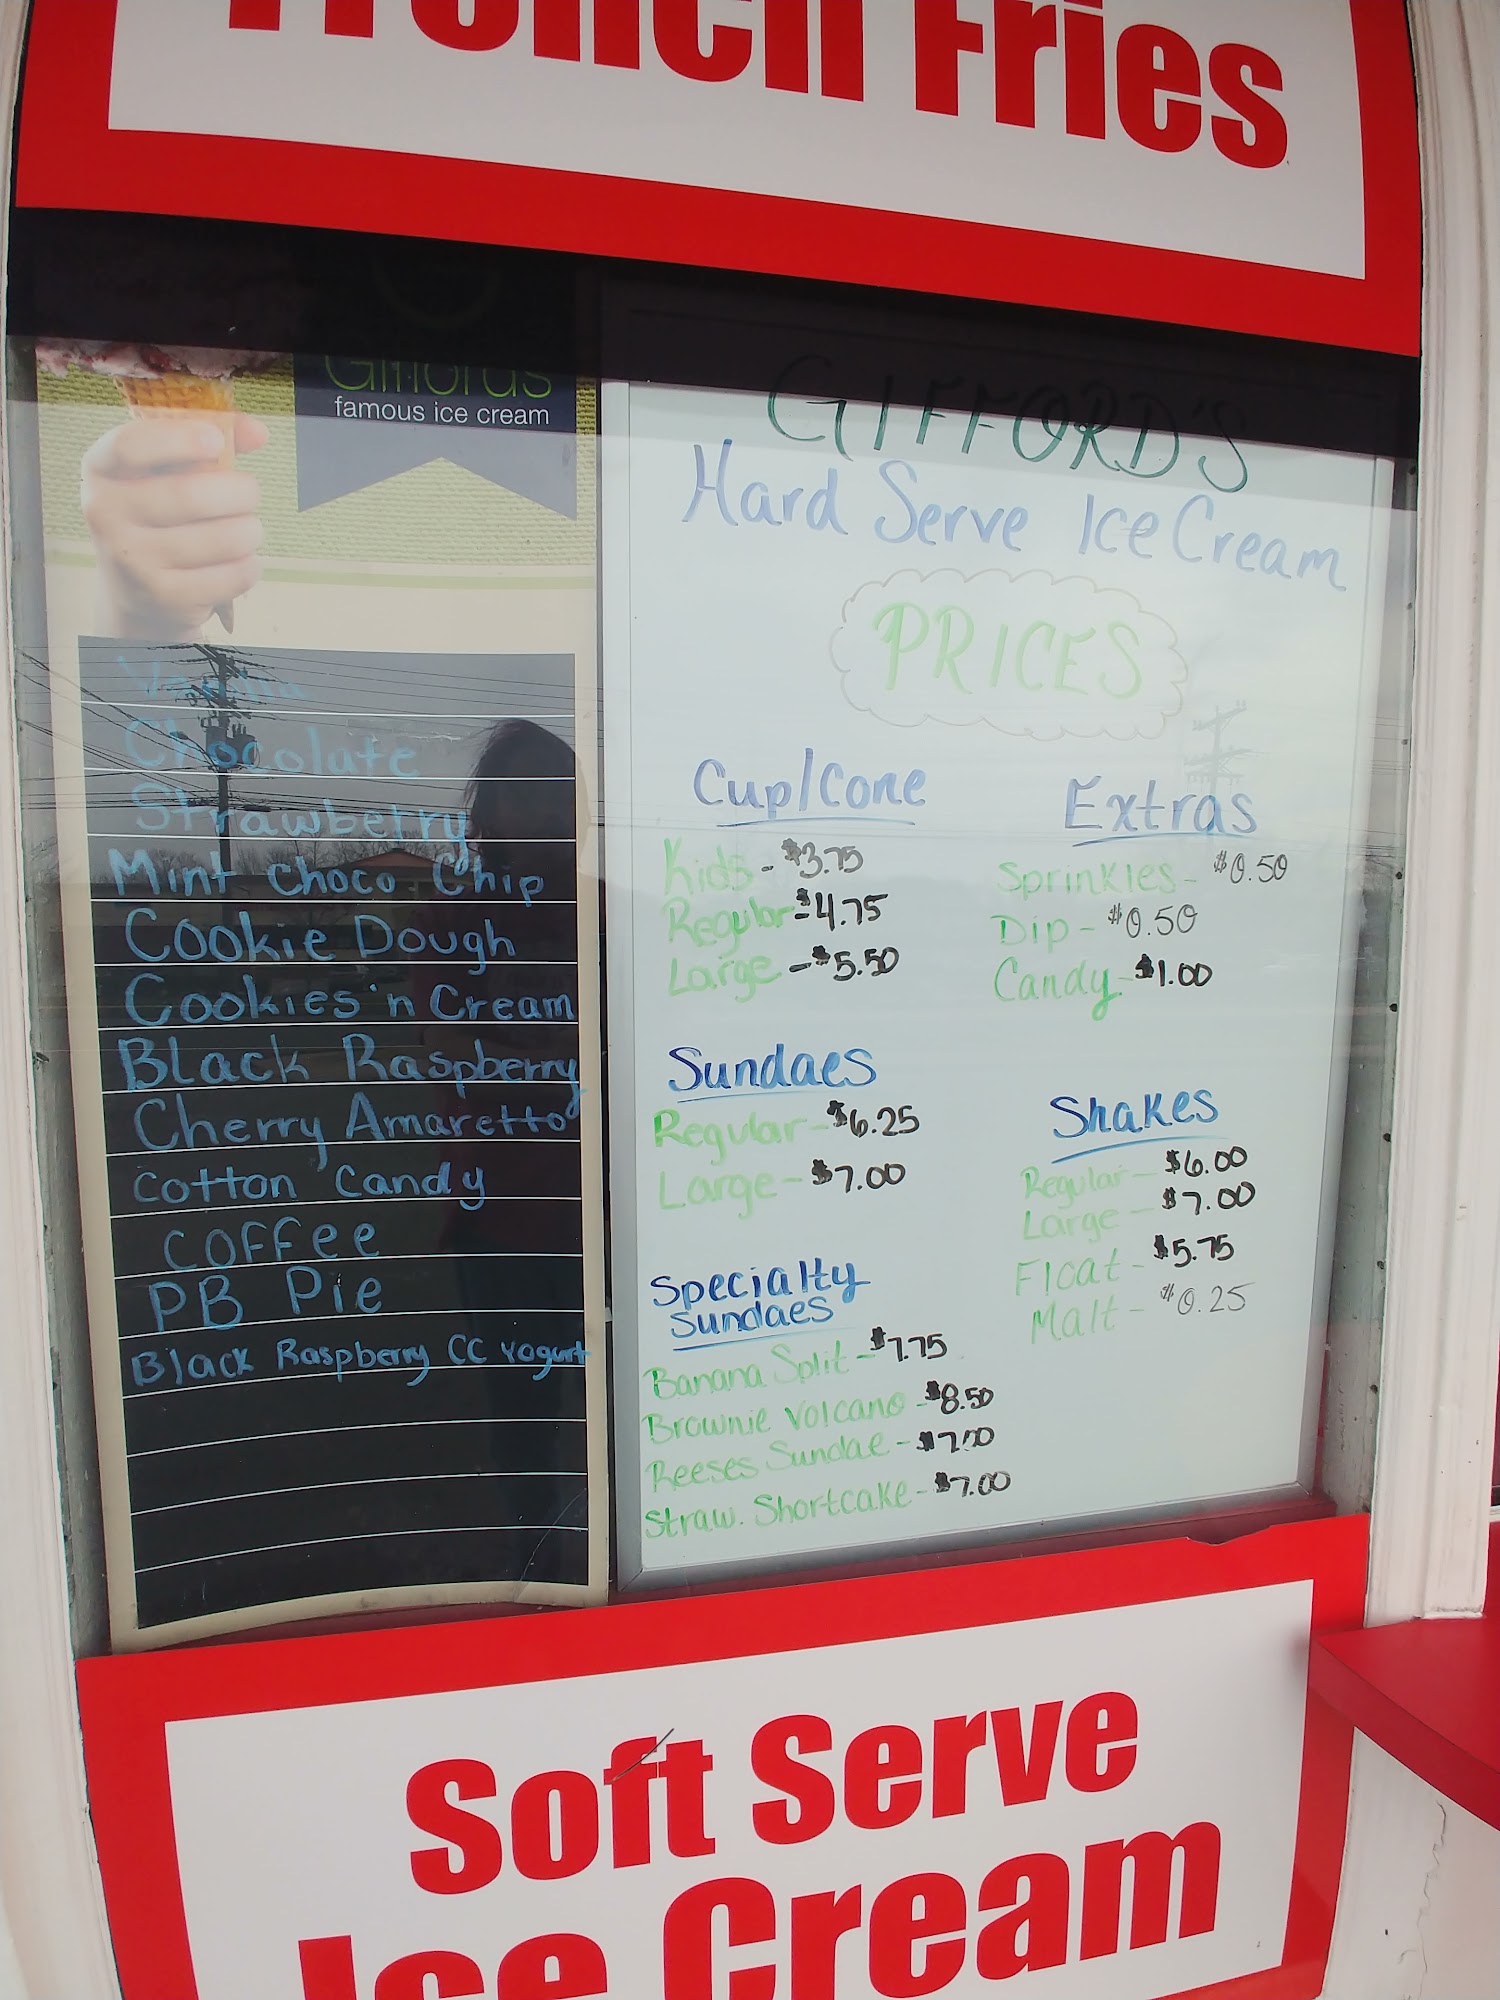 French Fries
Giffords
famous ice cream
Vanilla
Chocolate
Strawberry
Mint Choco Chip
Cookie Dough
Cookies 'n Cream
Black Raspberry
Cherry Amaretto
Cotton Candy
COFFee
PB Pie
Black Raspberry CC Yogurt
GIFFORD'S
Hard Serve Ice Cream
PRICES
Cup/Cone
Kids - $3.75
Regular - $4.75
Large - $5.50
Extras
Sprinkles - $0.50
Dip - $0.50
Candy - $1.00
Sundaes
Regular - $6.25
Large - $7.00
Shakes
Regular - $6.00
Large - $7.00
Float - $5.75
Malt - $0.25
Specialty
Sundaes
Banana Split - $7.75
Brownie Volcano - $8.50
Reeses Sundae - $7.00
Straw. Shortcake - $7.00
Soft Serve
Ice Cream